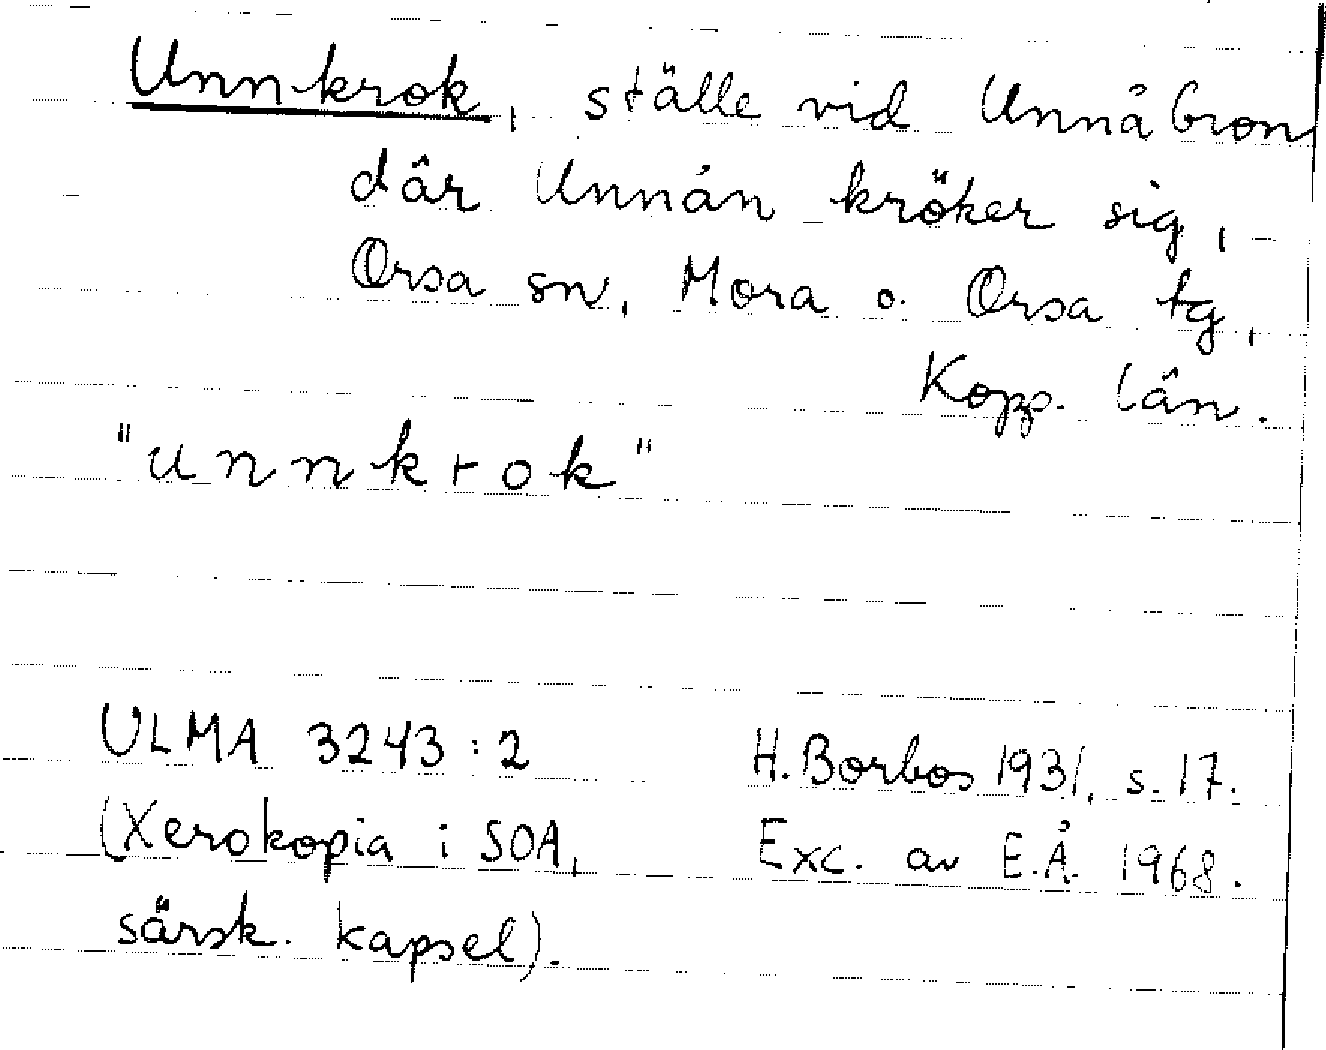 Unnkrok, ställe vid Unnåbron
där Unnån kröker sig,
Orsa sn, Mora o. Orsa tg,
Kopp. län.
"unnkrok"
ULMA 3243:2 H. Borbos 1931, s. 17.
(Xerokopia i SOA, Exc. av E.Å. 1968.
särsk. kapsel).